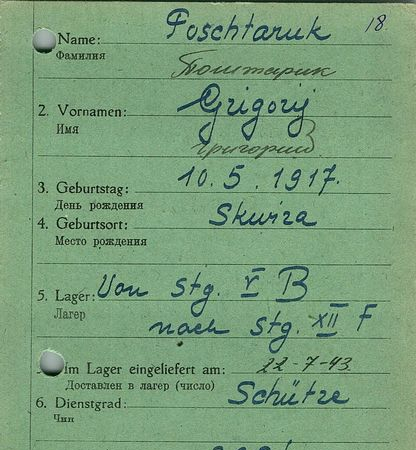 18.
Name: Poschtaruk
Фамилия
Поштарик
2. Vornamen: Grigorij
Имя
григорий
3. Geburtstag: 10.5.1917.
День рождения
4. Geburtsort: Skwira
Место рождения
5. Lager: Von Stg. V B
Лагер
nach Stg. XII F
Im Lager eingeliefert am: 22-7-43.
Доставлен в лагер (число)
6. Dienstgrad: Schütze
Чин